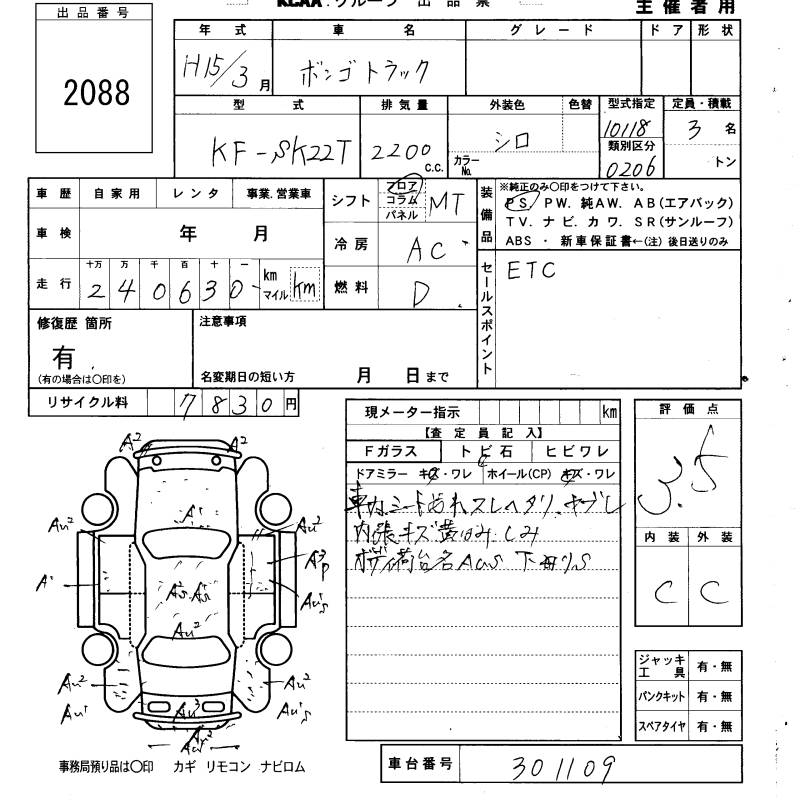 KCAA.グループ 出品票
主催者用
出品番号
2088
年式 車名 グレード ドア 形状
H15/3月 ボンゴトラック
型式 排気量 外装色 色替 型式指定 定員・積載
KF-SK22T 2200 c.c. シロ カラーNo. 10118 3名
類別区分
0206 トン
車歴 自家用 レンタ 事業.営業車
シフト フロア コラム パネル MT
装備品
※純正のみ〇印をつけて下さい。
PS. PW. 純AW. AB(エアバック)
TV. ナビ. カワ. SR(サンルーフ)
ABS ・ 新車保証書←(注) 後日送りのみ
車検 年 月
冷房 AC
走行 十万 万 千 百 十 一 km マイル
240630 km
燃料 D
セールスポイント
ETC
修復歴 箇所
有
(有の場合は〇印を)
注意事項
名変期日の短い方 月 日まで
リサイクル料 7830円
現メーター指示 km
【査定員記入】
Fガラス トビ石 ヒビワレ
ドアミラー キズ・ワレ ホイール(CP) キズ・ワレ
車内シート
内張キズ 黄ばみ.シミ
荷台
評価点
3.5
内装 外装
C C
ジャッキ工具 有・無
パンクキット 有・無
スペアタイヤ 有・無
A2 A2
A1
Au2 Au2
A1
Au2
Au2 Au2
Au3
事務局預り品は〇印 カギ リモコン ナビロム
車台番号 301109